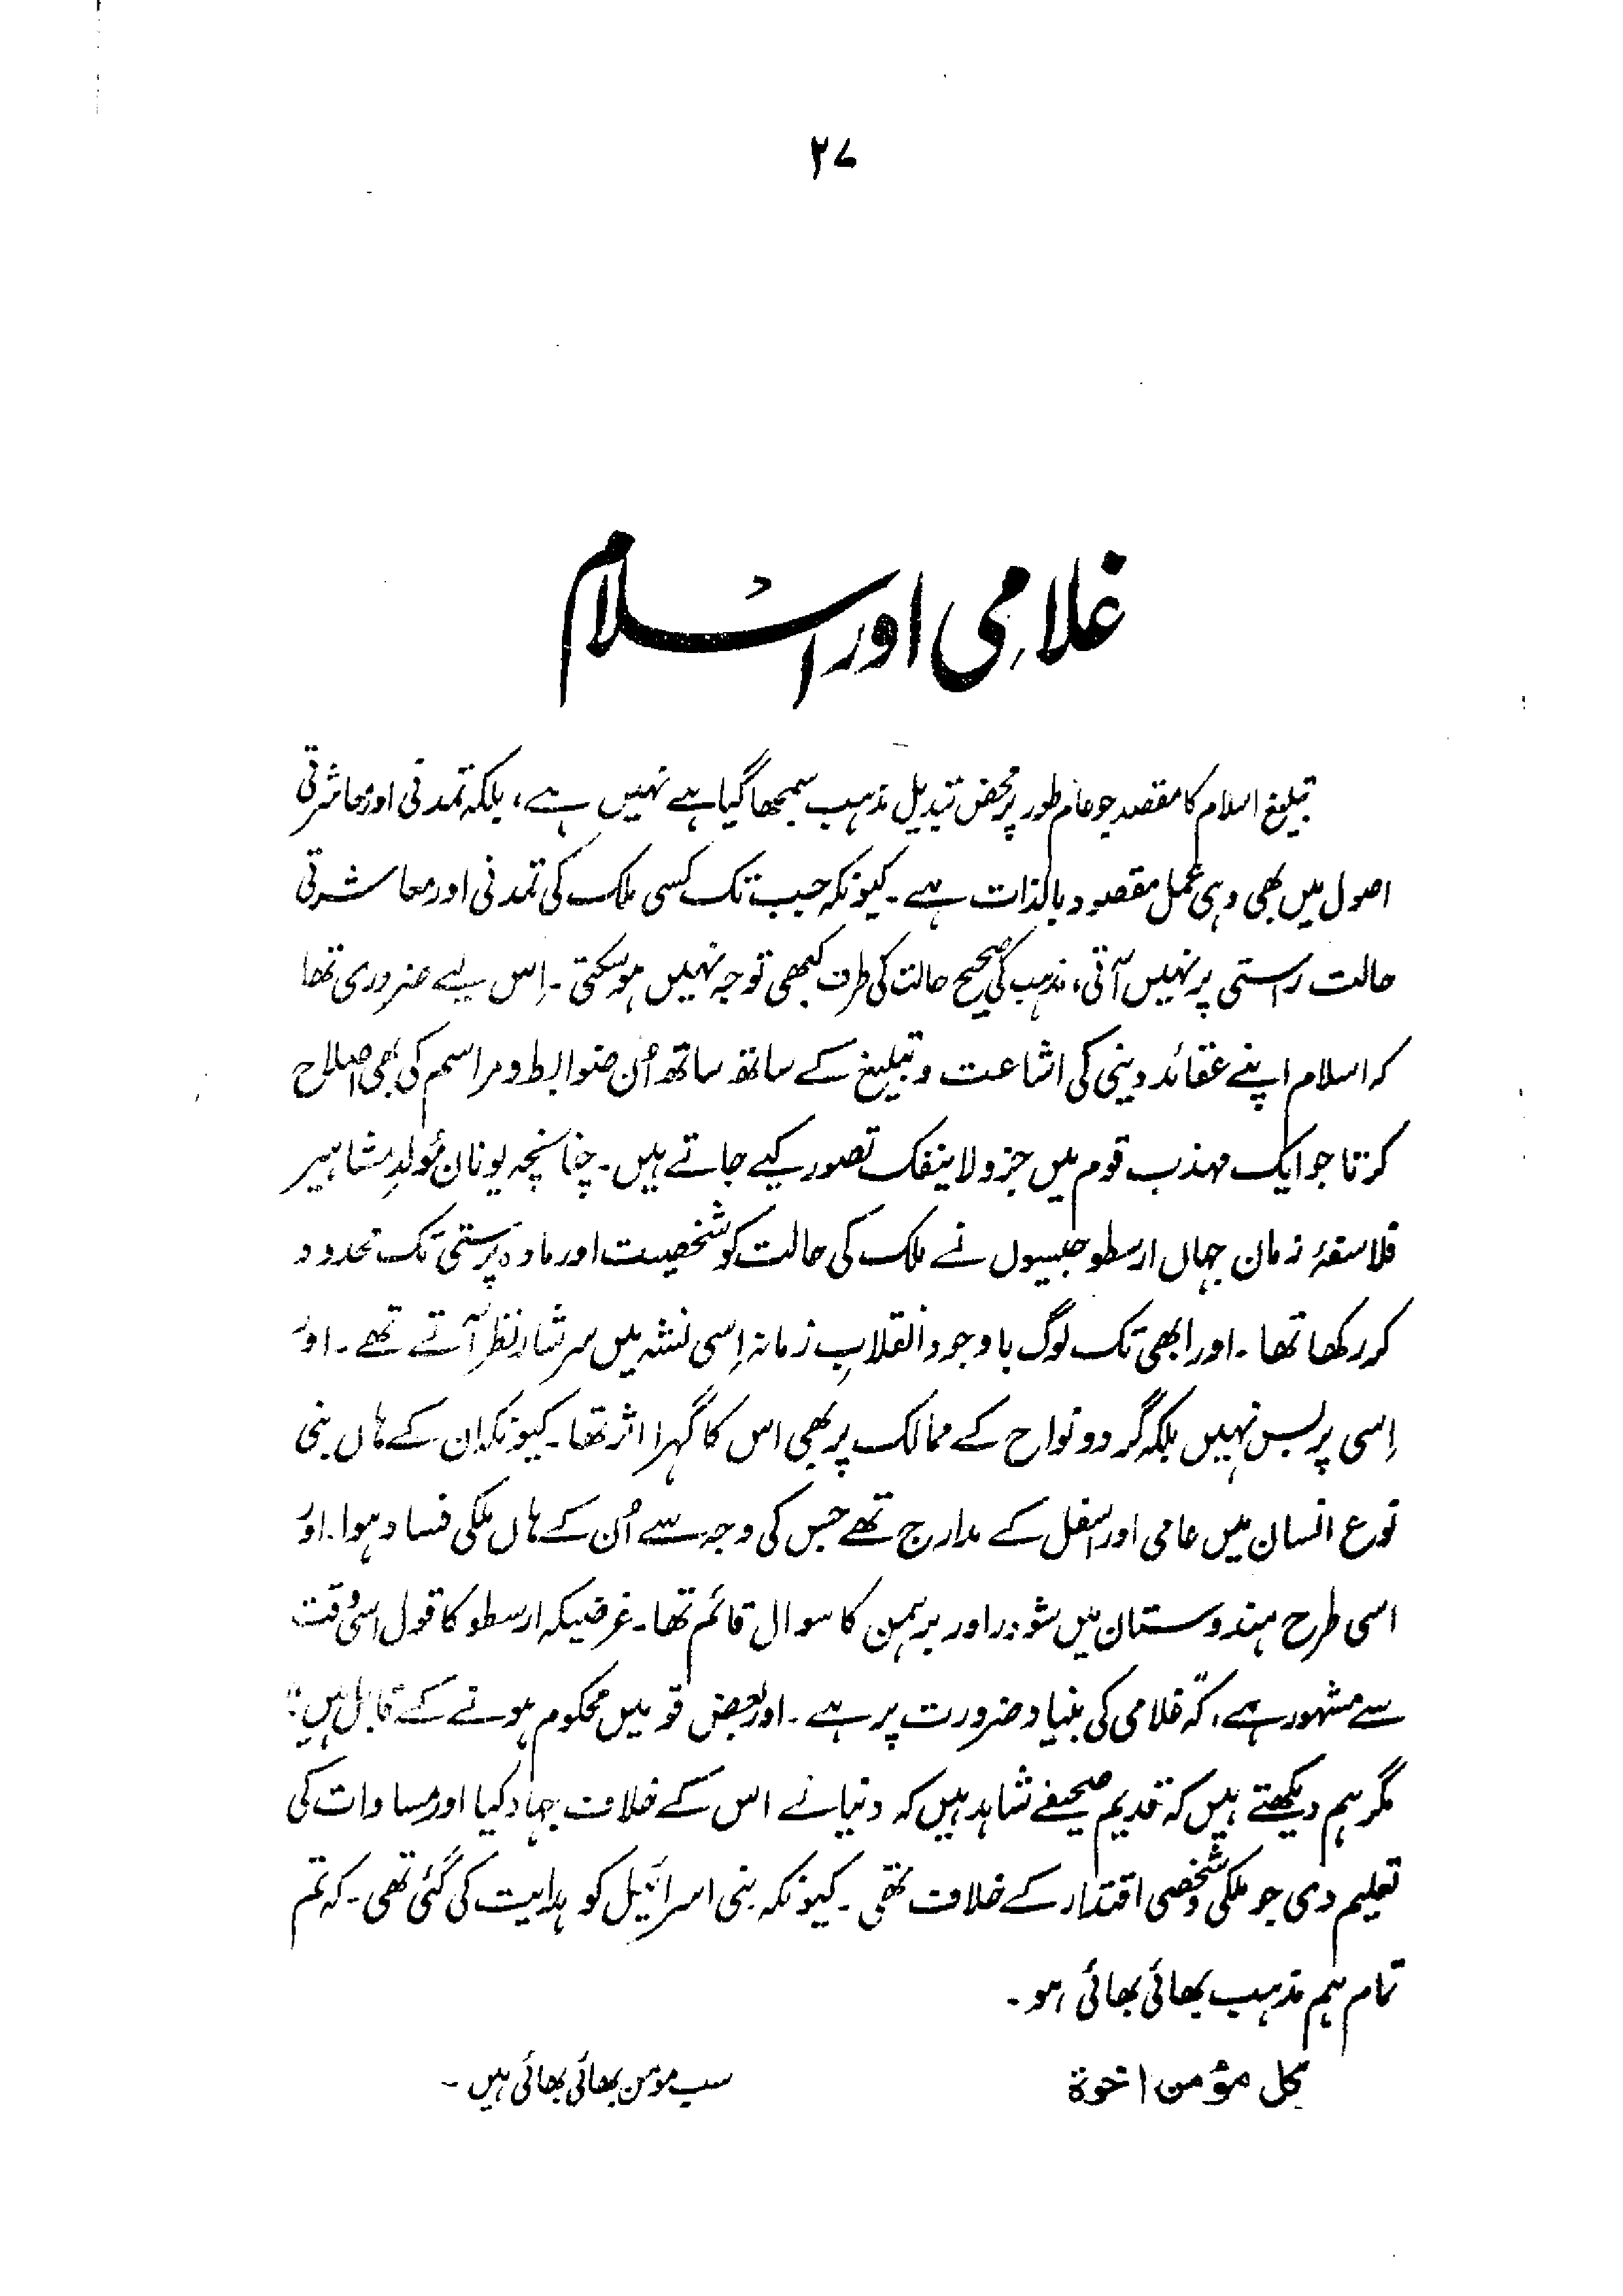 ۲۷
غلامی اور اسلام
تبلیغ اسلام کا مقصد جو عام طور پر محض تبدیل مذہب سمجھا گیا ہے نہیں ہے، بلکہ تمدنی اور معاشرتی
اصول میں بھی وہی عمل مقصود بالذات ہے۔ کیونکہ جب تک کسی ملک کی تمدنی اور معاشرتی
حالت راستی پر نہیں آتی، مذہب کی صحیح حالت کی طرف کبھی توجہ نہیں ہو سکتی۔ اِس لیے ضروری تھا
کہ اسلام اپنے عقائد دینی کی اشاعت و تبلیغ کے ساتھ ساتھ اُن ضوابط و مراسم کی بھی اصلاح
کرتا جو ایک مہذب قوم میں جزو لاینفک تصور کیے جاتے ہیں۔ چنانچہ یونان مُولدِ مشاہیر
فلاسفۂ زمان جہاں ارسطو جیسوں نے ملک کی حالت کو شخصیت اور مادہ پرستی تک محدود
کر رکھا تھا۔ اور ابھی تک لوگ باوجود انقلابِ زمانہ اِسی نشہ میں سرشار نظر آتے تھے۔ اور
اِسی پر بس نہیں بلکہ گرد و نواح کے ممالک پر بھی اس کا گہرا اثر تھا۔ کیونکہ ان کے ہاں بنی
نوع انسان میں عامی اور اسفل کے مدارج تھے جس کی وجہ سے اُن کے ہاں ملکی فساد ہوا۔ اور
اسی طرح ہندوستان میں شودر اور برہمن کا سوال قائم تھا۔ غرضیکہ ارسطو کا قول اسی وقت
سے مشہور ہے، کہ "غلامی کی بنیاد ضرورت پر ہے۔ اور بعض قومیں محکوم ہونے کے قابل ہیں"؛
مگر ہم دیکھتے ہیں کہ قدیم صحیفے شاہد ہیں کہ دنیا نے اس کے خلاف جہاد کیا اور مساوات کی
تعلیم دی جو ملکی و شخصی اقتدار کے خلاف تھی۔ کیونکہ بنی اسرائیل کو ہدایت کی گئی تھی۔ کہ تم
تمام ہم مذہب بھائی بھائی ہو۔
کل مؤمن اخوة سب مؤمن بھائی بھائی ہیں۔